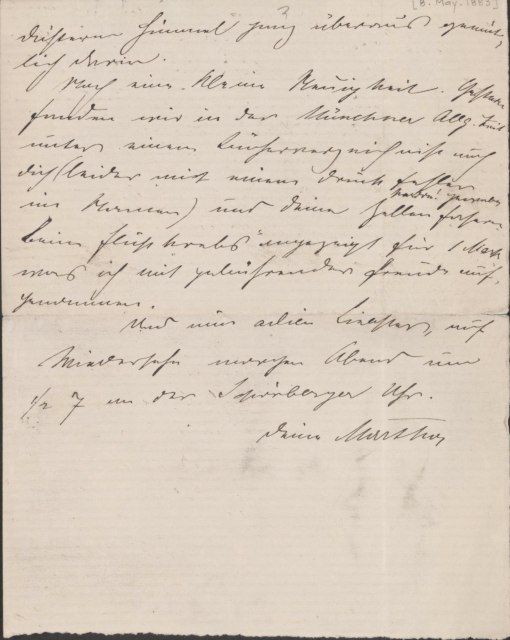 3
[8. May. 1883]
düsteren Himmel ganz überaus gemüt-
lich darin.
Noch eine kleine Neuigkeit. Gestern
fanden wir in der Münchner Allg. Zeit
unter einem Bücherverzeichnisse auch
dich (leider mit einem Druckfehler
im Namen) und deine Zellen
beim Flußkrebs" angezeigt für 1 Mark
was ich mit gebührender Freude auf-
genommen.
Und nun adieu Liebster, auf
Wiedersehn morgen Abend um
1/2 7 an der Uhr.
deine Martha